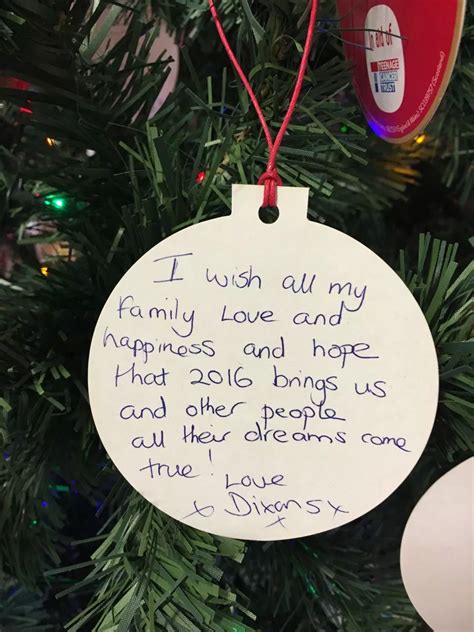 in aid of
TEENAGE
CANCER
TRUST
I wish all my
family Love and
happiness and hope
that 2016 brings us
and other people
all their dreams come
true!
Love
x Dixons x
x